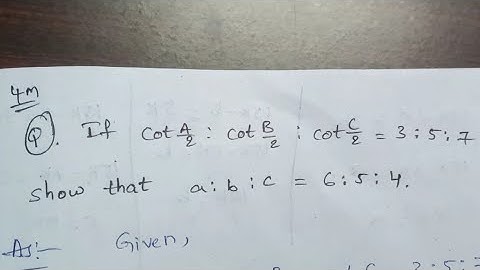 4m
Q. If cot A/2 : cot B/2 : cot C/2 = 3:5:7
show that a:b:c = 6:5:4.
As:- Given,